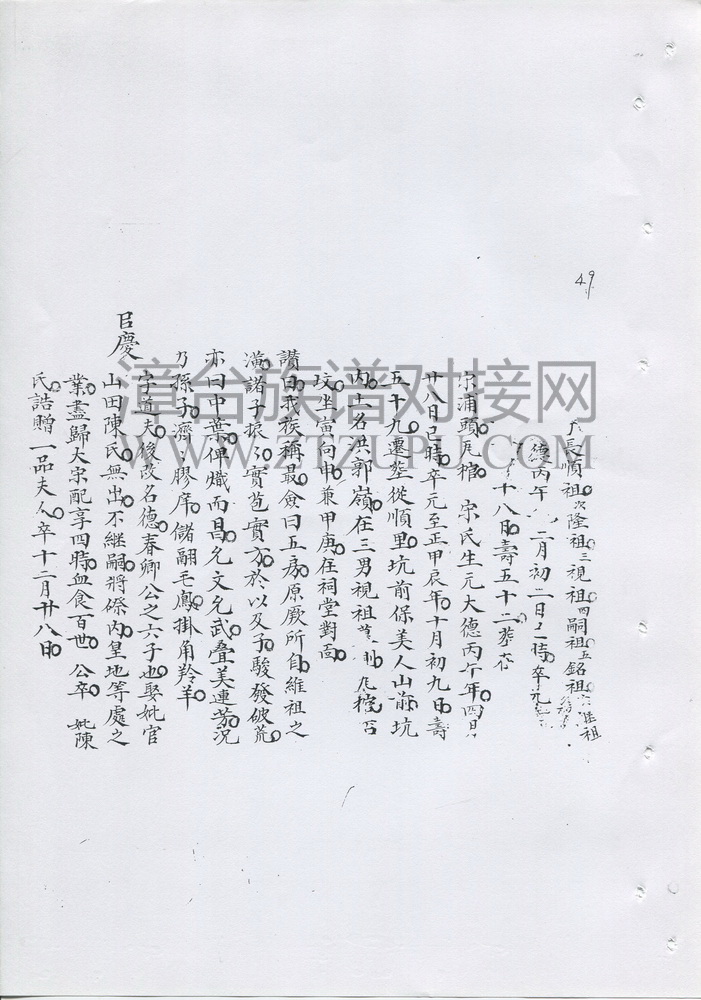 49
長順祖次隆祖三視祖四嗣祖五銘祖
德丙午 二月初二日 時卒元
十八日壽五十二葬在
宗浦頭 棺 宗氏生元大德丙午年四月
廿八日巳時卒元至正甲辰年十月初九日壽
五十九遷塟從順里坑前保美人山前坑
内土名洪郭嶺在三男視祖
坟坐寅向申兼甲庚在祠堂對面
讃曰我族稱最僉曰五房原厥所自維祖之
諸子振 實苞實方於以及子駿發破荒
亦曰中葉俾熾而昌允文允武叠美連芳况
乃孫子濟 膠庠儲翮毛鳳掛角羚羊
臣慶
字道夫後改名德春卿公之六子也娶妣官
山田陳氏無出不継嗣將磜内皇地等處之
業盡歸大宗配享四時血食百世 公卒 妣陳
氏誥贈一品夫人卒十二月廿八日
漳台族谱对接网
WWW.ZTZUPU.COM